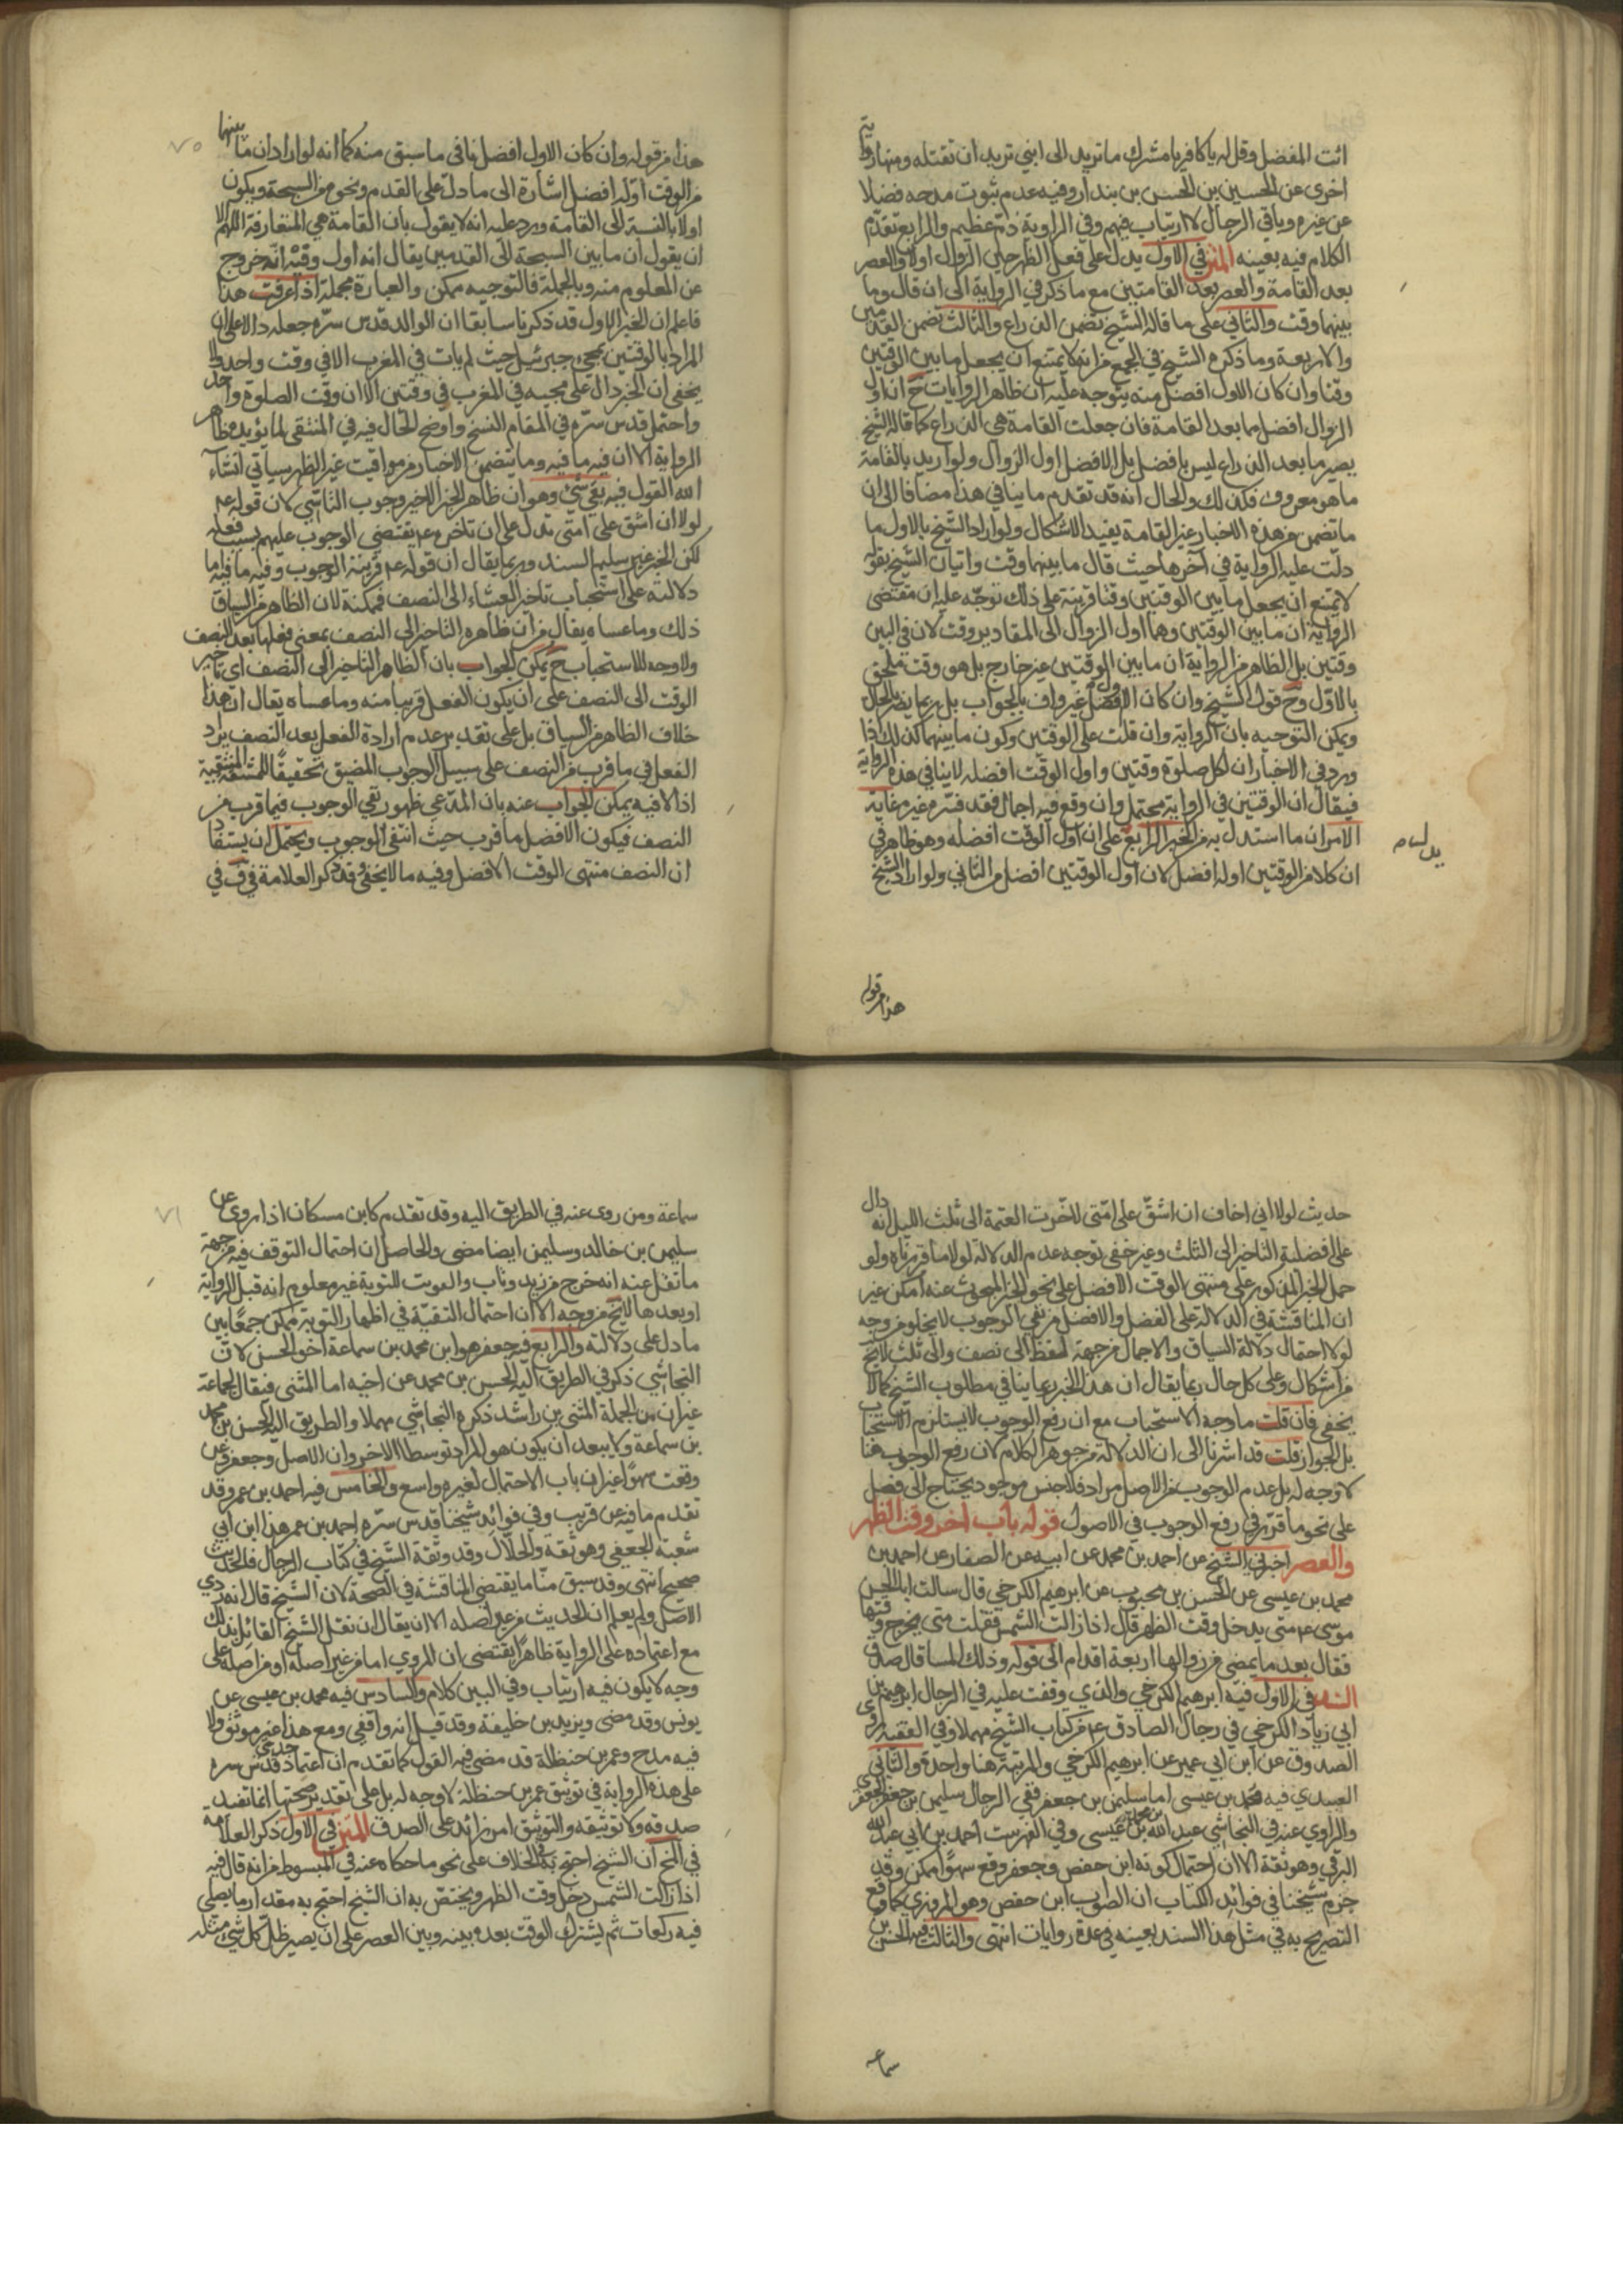 ائت المفضل وقل له يا كافر يا مشرك ما تريد الى ابني تريد ان تقتله ومنها رواية
اخرى عن الحسين بن الحسن بن بندار وفيه عدم ثبوت مدحه فضلا
عن غيره وباقي الرجال لا ارتياب فيهم وفي الراوية ذم عظيم والرابع تقدم
الكلام فيه بعينه المتن في الاول يدل على فعل الظهر حين الزوال اولا والعصر
بعد القامة والعصر بعد القامتين مع ما ذكر في الرواية الى ان قال وما
بينهما وقت والثاني على ما قاله الشيخ تضمن الذراع والثالث تضمن القدمين
والاربعة وما ذكره الشيخ في الجمع من انه لا يمتنع ان يجعل ما بين الوقتين
وقتا وان كان الاول افضل منه يتوجه عليه ان ظاهر الروايات ح ان اول
الزوال افضل مما بعد القامة فان جعلت القامة هي الذراع كما قاله الشيخ
يصير ما بعد الذراع ليس بافضل بل الافضل اول الزوال ولو اريد بالقامة
ما هو معروف فكذلك والحال انه قد تقدم ما ينافي هذا مضافا الى ان
ما تضمن من هذه الاخبار غير القامة يفيد الاشكال ولو اراد الشيخ بالاول ما
دلت عليه الرواية في اخرها حيث قال ما بينهما وقت واتيان الشيخ بقوله
لا يمتنع ان يجعل ما بين الوقتين وقتا قرينة على ذلك توجه عليه ان مقتضى
الرواية ان ما بين الوقتين وهما اول الزوال الى المقادير وقت لان في البين
وقتين بل الظاهر من الرواية ان ما بين الوقتين غير خارج بل هو وقت ملحق
بالاول وح قول الشيخ وان كان الاول افضل غير واف بالجواب بل ربما يضر بالحال
ويمكن التوجيه بان الرواية وان قلت على الوقتين وكون ما بينهما كذلك اذا
ورد في الاخبار ان لكل صلوة وقتين واول الوقت افضله لا ينافي هذه الرواية
فيقال ان الوقتين في الرواية محتمل وان وقع فيه اجمال فقد فسره غيره غاية
الامر ان ما استدل به من الخبر الرابع على ان اول الوقت افضله وهو ظاهر في
ان كلا من الوقتين اوله افضل لان اول الوقتين افضل من الثاني ولو اراد الشيخ
هذا من قوله
هذا من قوله وان كان الاول افضل نافى ما سبق منه كما انه لو اراد ان ما بينهما
من الوقت اوله افضل اشارة الى ما دل على القدم ونحوه من السبحة ويكون
اولا بالنسبة الى القامة ورد عليه انه لا يقول بان القامة هي المتعارفة اللهم الا
ان يقول ان ما بين السبحة الى القدمين يقال انه اول وفيه انه خروج
عن المعلوم منه وبالجملة فالتوجيه ممكن والعبارة مجملة اذا عرفت هذا
فاعلم ان الخبر الاول قد ذكرنا سابقا ان الوالد قدس سره جعله دالا على ان
المراد بالوقتين بمجيء جبرئيل حيث لم يات في المغرب الا في وقت واحد ولا
يخفى ان الخبر دال على مجيئه في المغرب في وقتين الا ان وقت الصلوة واحد
واحتمل قدس سره في المقام النسخ واوضح الحال فيه في المنتقى لما يؤيده ظاهر
الرواية الا ان فيه ما فيه وما يتضمن الاخبار من مواقيت غير الظهر سياتي انشاء
الله القول فيه بقي شيء وهو ان ظاهر الخبر الاخير وجوب التاسي لان قوله عم
لولا ان اشق على امتي تدل على ان تاخره عم يقتضي الوجوب عليهم بسبب فعله
لكن الخبر غير سليم السند وربما يقال ان قوله عم قرينة الوجوب وفيه ما فيه اما
دلالته على استحباب تاخير العشاء الى النصف فممكنة لان الظاهر من السياق
ذلك وما عساه يقال من ان ظاهره التاخير الى النصف بمعنى فعلها بعد النصف
ولا وجه للاستحباب ح يمكن الجواب بان الظاهر التاخير الى النصف اي تاخير
الوقت الى النصف على ان يكون الفعل قريبا منه وما عساه يقال ان هذا
خلاف الظاهر من السياق بل على تقدير عدم ارادة الفعل بعد النصف يراد
الفعل في ما قرب من النصف على سبيل الوجوب المضيق تحقيقا للمشقة المنتفية
اذ لا فيه يمكن الجواب عنه بان المدعى ظهور نفي الوجوب فيما قرب من
النصف فيكون الافضل ما قرب حيث انتفى الوجوب ويحتمل ان يستفاد
ان النصف منتهى الوقت الافضل وفيه ما لا يخفى وقد ذكر العلامة في ف في
حديث لولا اني اخاف ان اشق على امتي لاخرت العتمة الى ثلث الليل انه دال
على افضلية التاخير الى الثلث وغير خفي توجه عدم الدلالة لولا ما قررناه ولو
حمل الخبر المذكور على منتهى الوقت الافضل على نحو الخبر المبحوث عنه امكن غير
ان المناقشة في الدلالة على الفضل والافضل من نفي الوجوب لا يخلو من وجه
لولا احتمال دلالة السياق والاجمال من جهة لفظ الى نصف والى ثلث لا يخ
من اشكال وعلى كل حال ربما يقال ان هذا الخبر ربما ينافي مطلوب الشيخ كما لا
يخفى فان قلت ما وجه الاستحباب مع ان رفع الوجوب لا يستلزم الاستحباب
بل الجواز قلت قد اشرنا الى ان الدلالة من جوهر الكلام لان رفع الوجوب هنا
لا وجه له بل عدم الوجوب من الاصل مراد فلا جنس موجود يحتاج الى فصل
على نحو ما قرر في رفع الوجوب في الاصول قوله باب اخر وقت الظهر
والعصر اخبرني الشيخ عن احمد بن محمد عن ابيه عن الصفار عن احمد بن
محمد بن عيسى عن الحسن بن محبوب عن ابرهيم الكرخي قال سالت ابا الحسن
موسى عم متى يدخل وقت الظهر قال اذا زالت الشمس فقلت متى يخرج وقتها
فقال بعد ما يمضي من زوالها اربعة اقدام الى قوله وذلك المسا قال صدق
السند في الاول فيه ابرهيم الكرخي والذي وقفت عليه في الرجال ابرهيم بن
ابي زياد الكرخي في رجال الصادق عم من كتاب الشيخ مهملا وفي الفقيه روى
الصدوق عن ابن ابي عمير عن ابرهيم الكرخي والمرتبة هنا واحدة والثاني
العبيدي فيه محمد بن عيسى اما سليمن بن جعفر ففي الرجال سليمن بن جعفر الجعفري
والراوي عنه في النجاشي عبد الله بن محمد بن عيسى وفي الفهرست احمد بن ابي عبد الله
البرقي وهو ثقة الا ان احتمال كونه ابن حفص وجعفر وقع سهوا ممكن وقد
جزم شيخنا في فوائد الكتاب ان الصواب ابن حفص وهو المروزي كما وقع
التصريح به في مثل هذا السند بعينه في عدة روايات انتهى والثالث فيه الحسن بن
سماعه
سماعة ومن روى عنه في الطريق اليه وقد تقدم كابن مسكان اذا روى عن
سليمن بن خالد وسليمن ايضا مضى والحاصل ان احتمال التوقف فيه من جهة
ما نقل عنه انه خرج مع زيد وتاب والموت للتوبة غير معلوم انه قبل الرواية
او بعدها لا يخ من وجه الا ان احتمال التقية في اظهار التوبة ممكن جمعا بين
ما دل على دلالته والرابع فيه جعفر هو ابن محمد بن سماعة اخو الحسن لان
النجاشي ذكر في الطريق اليه الحسن بن محمد عن اخيه اما المثنى فيقال لجماعة
غير ان من الجملة المثنى بن راشد ذكره النجاشي مهملا والطريق اليه الحسن بن محمد
بن سماعة ولا يبعد ان يكون هو المراد بتوسط الاخر وان الاصل وجعفر عن
وقعت سهوا غير ان باب الاحتمال لغيره واسع والخامس فيه احمد بن عمر وقد
تقدم ما فيه عن قريب وفي فوائد شيخنا قدس سره احمد بن عمر هذا ابن ابي
شعبة الجعفي وهو ثقة والحلال وقد وثقه الشيخ في كتاب الرجال فالحديث
صحيح انتهى وقد سبق منا ما يقتضي المناقشة في الصحة لان الشيخ قال انه ردي
الاصل ولم يعلم ان الحديث من غير اصله الا ان يقال ان نقل الشيخ القائل بذلك
مع اعتماده على الرواية ظاهرا يقتضي ان المروي اما من غير اصله او من اصله على
وجه لا يكون فيه ارتياب وفي البين كلام والسادس فيه محمد بن عيسى عن
يونس وقد مضى ويزيد بن خليفة وقد قيل انه واقفي ومع هذا غير موثق ولا
فيه مدح وعمر بن حنظلة قد مضى فيه القول كما تقدم ان اعتماد جدي قدس سره
على هذه الرواية في توثيق عمر بن حنظلة لا وجه له بل على تقدير صحتها انما تفيد
صدقه ولا توثيقه والتوثيق امر زائد على الصدق المتن في الاول ذكر العلامة
في المخ ان الشيخ احتج به في الخلاف على نحو ما حكاه عنه في المبسوط من انه قال فيه
اذا زالت الشمس دخل وقت الظهر ويختص به ان الشيخ احتج به مقدار ما يصلي
فيه ركعات ثم يشترك الوقت بعده بينه وبين العصر على ان يصير ظل كل شيء مثله